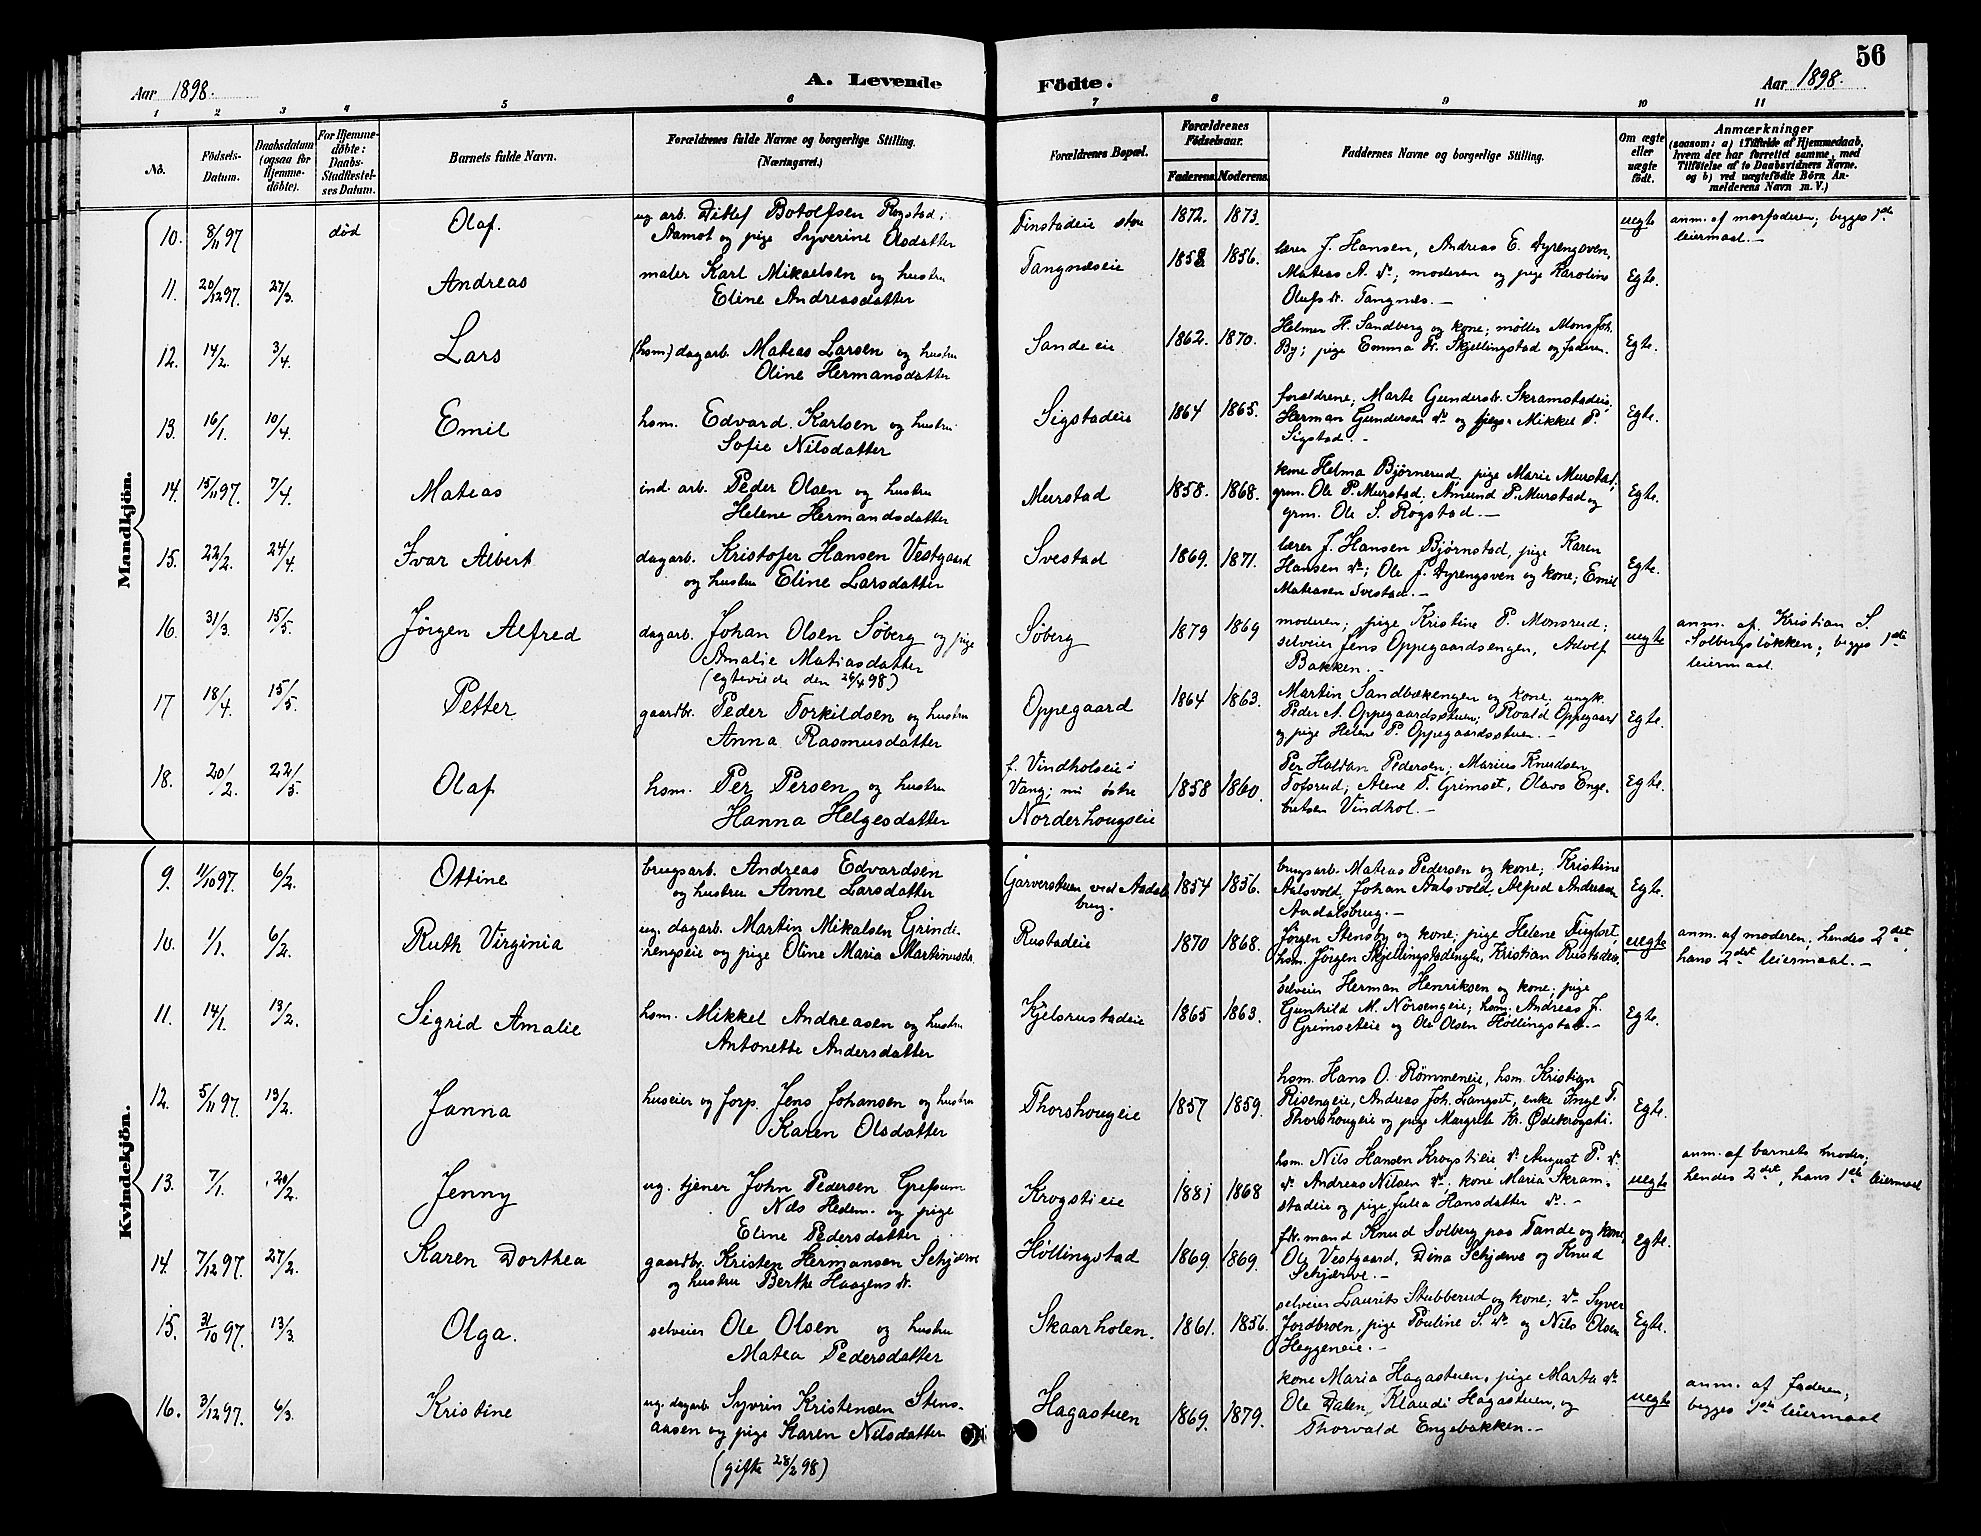 56
Aar 1898.
A. Levende Födte.
Aar 1898.
1 2 3 4 5 6 7 8 9 10 11
No.
Födsels-Datum.
Daabsdatum (ogsaa for Hjemmedöbte).
For Hjemmedöbte: Daabs-Stadfæstelses Datum.
Barnets fulde Navn.
Forældrenes fulde Navne og borgerlige Stilling. (Næringsvei.)
Forældrenes Bopæl.
Forældrenes Födselsaar.
Faderens. Moderens.
Faddernes Navne og borgerlige Stilling.
Om ægte eller uægte födt.
Anmærkninger
(saasom: a) i Tilfælde af Hjemmedaab,
hvem der har forrettet samme, med
Tilföielse af to Daabsvidners Navne.
og b) ved uægtefödte Börn Anmelderens Navn m. V.)
Mandkjön.
10. 8/11 97 död Olaf. ug. arb. Ditlef Botolfsen Rogstad i
Aamot og pige Syverine Olsdatter
Finstadeie 1872. 1873. uegte anm. af morfaderen; begges 1ste
leiermaal.—
11. 20/12 97. 27/3. Andreas maler Karl Mikaelsen og hustru
Eline Andreasdatter
Tangnæseie 1858. 1856. lærer J. Hansen, Andreas E. Dyrengoven,
Mateas A. do; moderen og pige Karoline
Olufsdr. Tangnæs.— Egte.
12. 14/2. 3/4. Lars (hsm.) dagarb. Mateas Larsen og hustru
Oline Hermansdatter
Sandeeie 1862. 1870. Helmer H. Sandberg og kone; møller Mons Joh.
By; pige Emma H. Skjellingstad og faderen. Egte.
13. 16/1. 10/4. Emil hsm. Edvard Karlsen og hustru
Sofie Nilsdatter
Sigstadeie 1864 1865. forældrene; Marte Gundersdr. Skramstadeie,
Herman Gundersen do og Mikkel P.
Sigstad.— Egte.
14. 15/11 97. 7/4. Mateas ind. arb. Peder Olsen og hustru
Helene Hermandsdatter
Murstad 1858. 1868. kone Helma Bjørnerud, pige Marie Murstad,
grm. Ole P. Murstad, Amund P. Murstad og
grm. Ole S. Rogstad.— Egte.
15. 22/2. 24/4. Ivar Albert dagarb. Kristofer Hansen Vestgaard
og hustru Eline Larsdatter
Svestad 1869. 1871. lærer J. Hansen Bjørnstad, pige Karen
Hansen do; Ole J. Dyrengsven og kone; Emil
Mateasen Svestad.— Egte.
16. 31/3. 15/5. Jørgen Alfred dagarb. Johan Olsen Søberg og pige
Amalie Matiasdatter
(egteviede den 26/4 98)
Søberg 1879 1869 moderen; pige Kristine P. Monsrud;
selveier Jens Oppegaardsengen, Adolf
Bakken.— uegte anm. af Kristian S.
Solbergsløkken; begges 1ste
leiermaal.
17 18/4. 15/5. Petter gaardbr. Peder Torkildsen og hustru
Anna Rasmusdatter
Oppegaard 1864 1863. Martin Sandbækengen og kone; ungk.
Peder A. Oppegaardsstuen; Roald Oppegaard
og pige Helene P. Oppegaardsstuen.— Egte.
18. 20/2. 22/5. Olaf hsm. Per Persen og hustru
Hanna Helgesdatter
f. Vindholseie i
Vang; nu østre
Norderhougseie
1858 1860. Per Haldan Pedersen; Marius Knudsen
Tofsrud; Alene T. Grimset, Olava Engebretsen Vindhol.— Egte.
Kvindekjön.
9. 11/10 97. 6/2. Ottine brugsarb. Andreas Edvardsen
og hustru Anne Larsdatter
Garverstuen ved Aadalsbrug. 1854 1856. brugsarb. Mateas Pedersen og kone; Kristine
Aalsvold, Johan Aalsvold, Alfred Andreasen
Aadalsbrug.— Egte.
10. 1/1. 6/2. Ruth Virginia ug. dagarb. Martin Mikalsen Grindehengseie og pige Oline Maria Martinusdr.
Rustadeie 1870 1868. Jørgen Stensby og kone; pige Helene
hsm. Jørgen Skjellingstadengen, Kristian Rustadeie. uegte anm. af moderen; hendes 2det,
hans 2det leiermaal.—
11. 14/1. 13/2. Sigrid Amalie hsm. Mikkel Andreasen og hustru
Antonette Andersdatter
Kjelsrustadeie 1865 1863. selveier Herman Henriksen og kone; pige
Gunhild M. Nörsengeie; hsm. Andreas J.
Grimseteie og Ole Olsen Høllingstad.— Egte.
12. 5/11 97. 13/2. Janna huseier og forp. Jens Johansen og hustru
Karen Olsdatter
Thorshougeie 1857 1859. hsm. Hans O. Römmeneie, hsm. Kristian
Risengeie, Andreas Joh. Langset, enke Inge T.
Thorshougeie og pige Margrete Kr. Ødekrogsti. Egte.
13. 7/1. 20/2. Jenny ug. tjener John Pedersen Grefsum
Nes Hedem. og pige
Eline Pedersdatter
Krogstieie 1881 1868 hsm. Nils Hansen Krogstieie do August P. do
do Andreas Nilsen do. kone Maria Skramstadeie og pige Julia Hansdatter do.— uegte anm. af barnets moder;
hendes 2det, hans 1ste leiermaal
14. 7/12 97. 27/2. Karen Dorthea gaardbr. Kristen Hermansen Schjærve
og hustru Berthe Haagensdr.
Høllingstad 1869. 1869. fhv. mand Knud Solberg paa Tande og kone,
Ole Vestgaard, Dina Schjærve og Knud
Schjærve.— egte.
15. 31/10 97. 13/3. Olga. selveier Ole Olsen og hustru
Matea Pedersdatter
Skaarholen. 1861. 1856. selveier Laurits Stubberud og kone; do Syver
Jordbroen, pige Pouline S. do og Nils Olsen
Heggeneie.— Egte.
16. 3/12 97. 6/3. Kristine ug. dagarb. Syvrin Kristensen Stensaasen og pige Karen Nilsdatter
(gifte 28/2 98)
Hagastuen 1869. 1879. kone Maria Hagastuen, pige Marta do
Ole Dalen, Klaudi Hagastuen, og
Thorvald Engebakken.— uegte anm. af faderen;
begges 1ste leiermaal